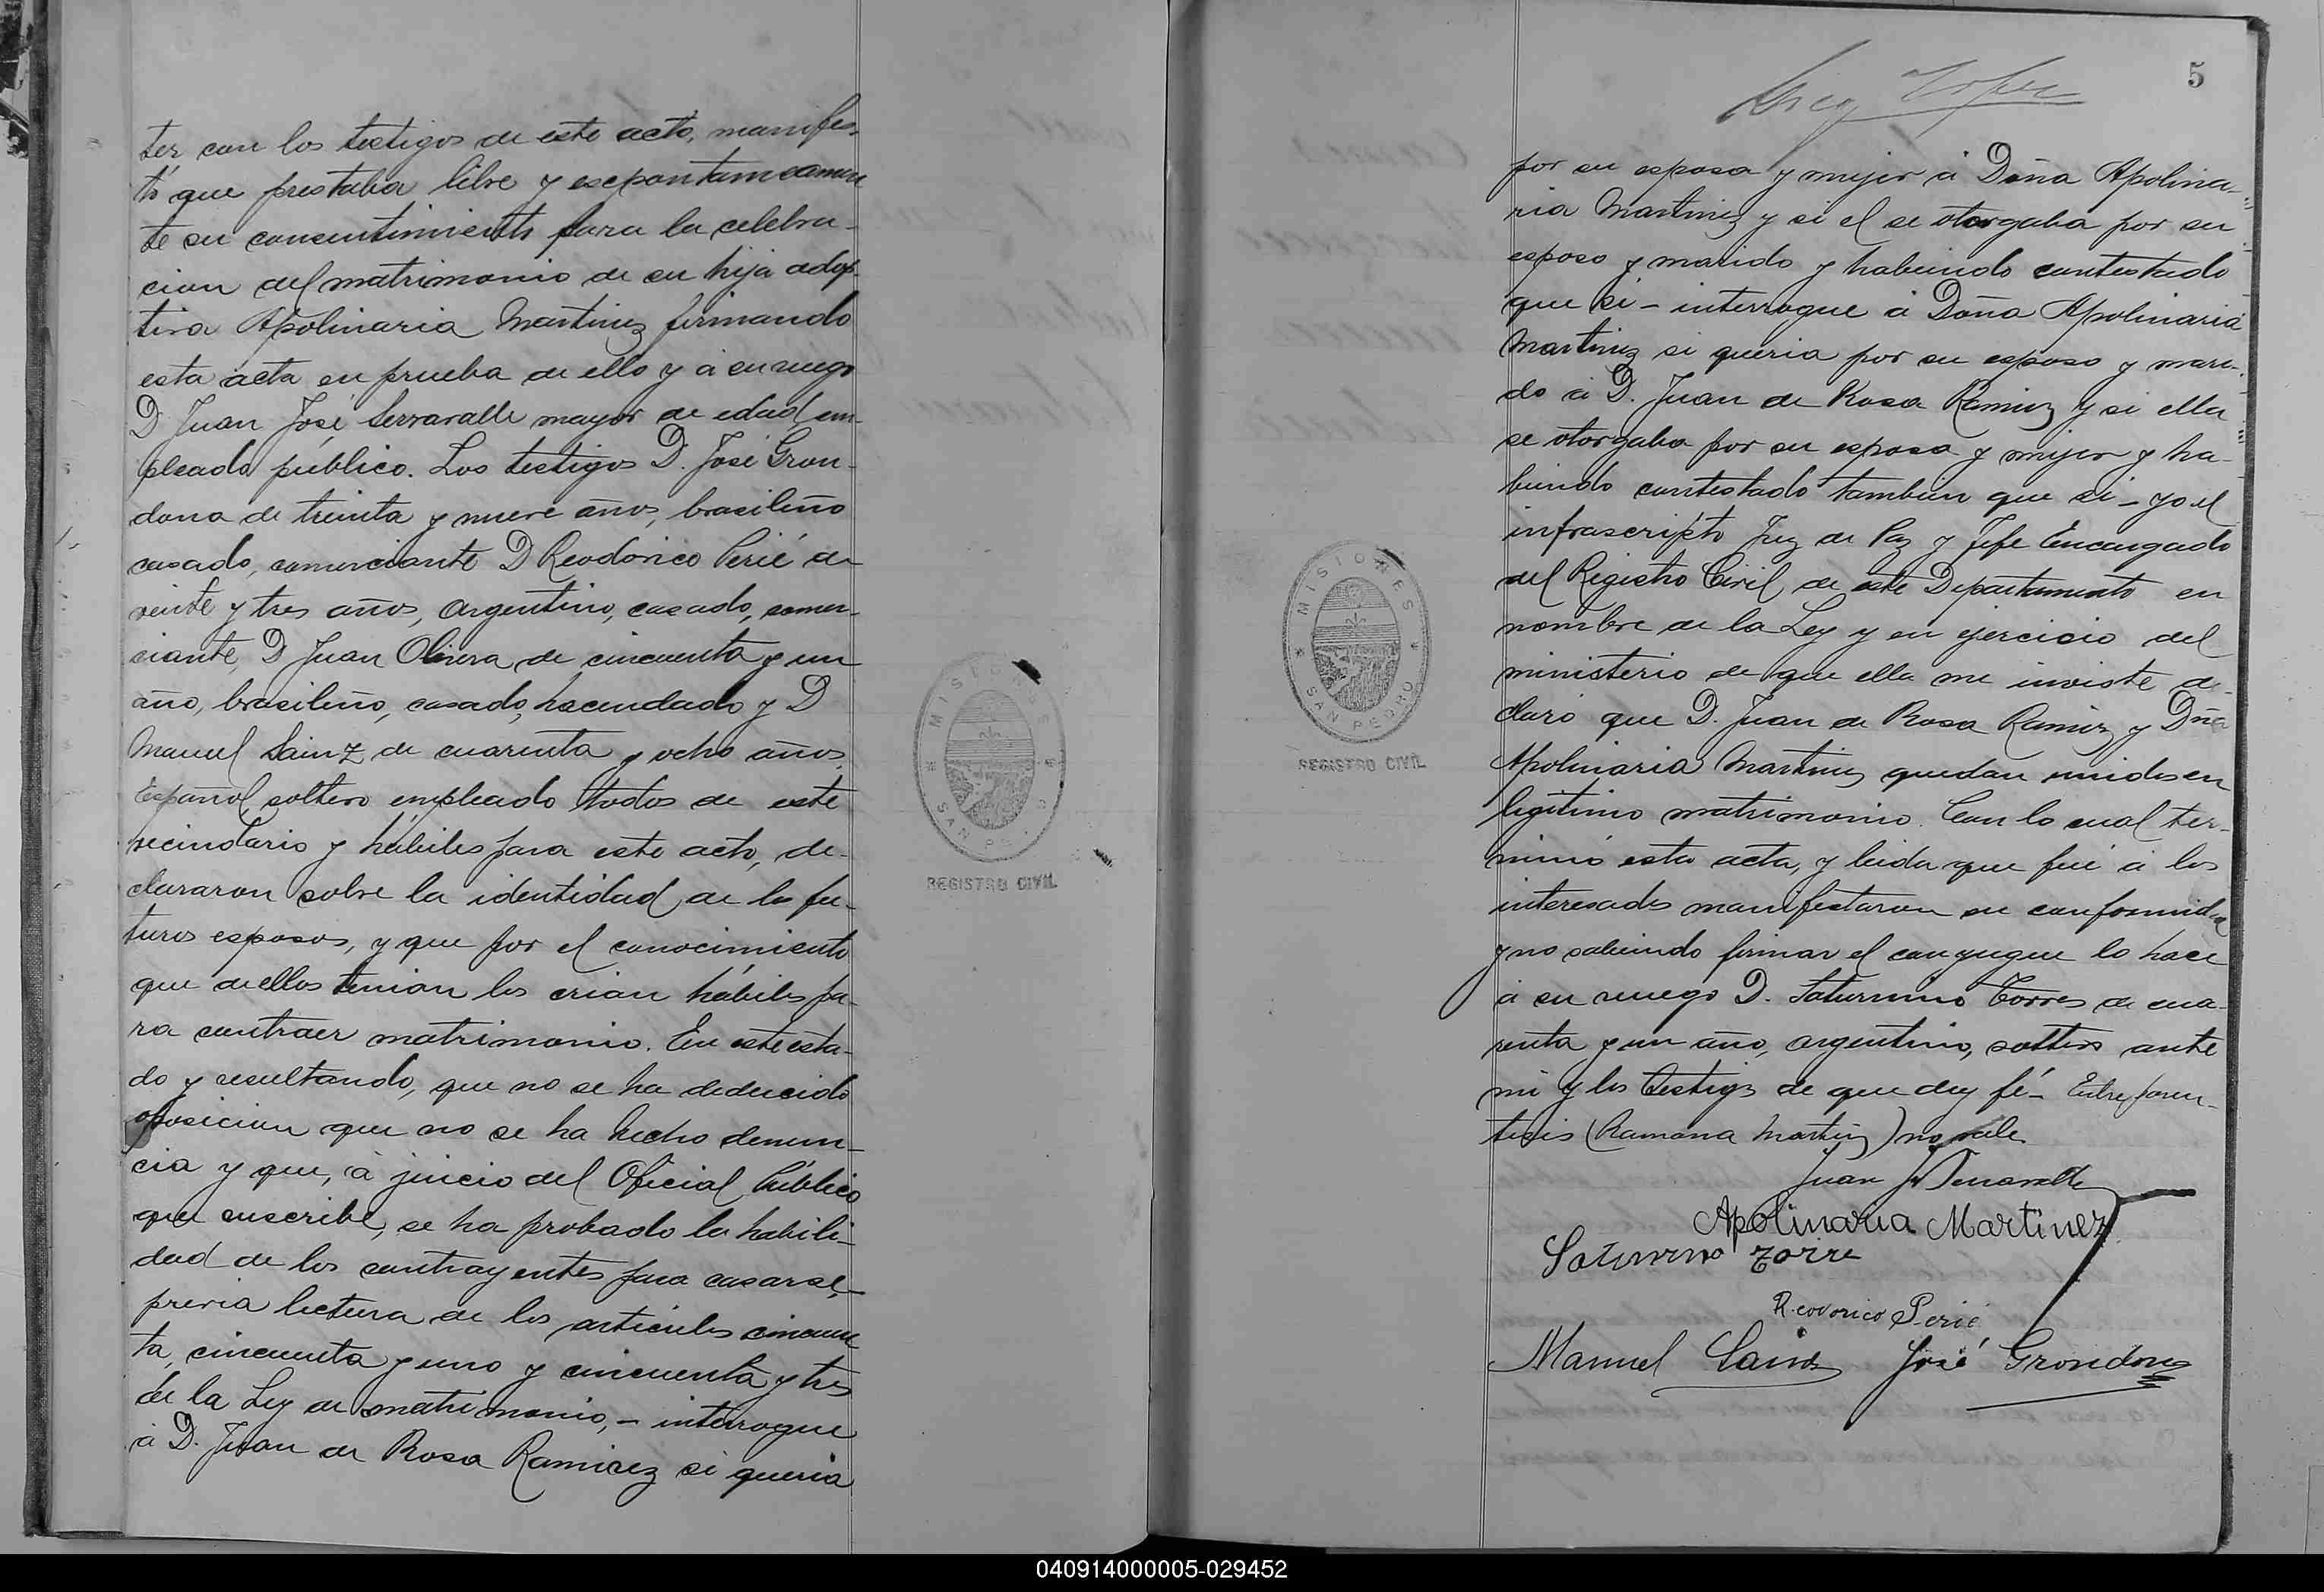 ter, con los testigos de este acto, manifes-
tó que prestaba libre y esepontaneamen
te su consentimiento para la celebra-
cion del matrimonio de su hija adop-
tiva Apolinaria Martinez firmando
esta acta en prueba de ello y á su ruego
D Juan José Serravalle mayor de edad em-
pleado público. Los testigos D. José Gron-
dona de treinta y nueve años, brasileño
casado, comerciante D Reodorico Perié de
veinte y tres años, Argentino, casado, comer-
ciante, D Juan Olivera de cincuenta y un
año, brasileño, casado, hacendado y D
Manuel Sainz de cuarenta y ocho años,
Español, soltero, empleado todos de este
vecindario y hábiles para este acto, de-
clararon sobre la identidad de los fu-
turos esposos, y que por el conocimiento
que de ellos tenian los crian hábiles pa-
ra contraer matrimonio. En este esta-
do y resultando, que no se ha deducido
oposicion que no se ha hecho denun-
cia y que, á juicio del Oficial Público
que suscribe, se ha probado la habili-
dad de los contrayentes para casarse,-
previa lectura de los artículos cincuen
ta, cincuenta y uno y cincuenta y tres
de la Ley de matrimonio, - interrogue
á D. Juan de Rosa Ramirez si queria
MISIONES
SAN PEDRO
REGISTRO CIVIL
5
por su esposa y mujer á Doña Apolina-
ria Martinez y si el se otorgaba por su
esposo y marido y habiendo contestado
que si - interrogue á Doña Apolinaria
Martinez si queria por su esposo y mari-
do á D. Juan de Rosa Ramirez y si ella
se otorgaba por su esposa y mujer y ha-
biendo contestado tambien que si - yo el
infrascripto Juez de Paz y Jefe Encargado
del Registro Civil de este Departamento en
nombre de la Ley y en ejercicio del
ministerio de que ella me inviste de-
claro que D. Juan de Rosa Ramirez y Dña
Apolinaria Martinez quedan unidos en
legitimo matrimonio. Con lo cual ter-
minó esta acta, y leida que fué á los
interesados manifestaron su conformidad
y no sabiendo firmar el conyugue lo hace
á su ruego D. Saturnino Torres de cua-
renta y un año, argentino, soltero ante
mi y los testigos de que doy fé - Entre paren-
tesis (Ramona Martinez) no vale.
Juan J. Serravalle
Apolinaria Martinez
Saturnino Torre
Reodorico Perié
Manuel Sainz José Grondona
MISIONES
SAN PEDRO
REGISTRO CIVIL
040914000005-029452